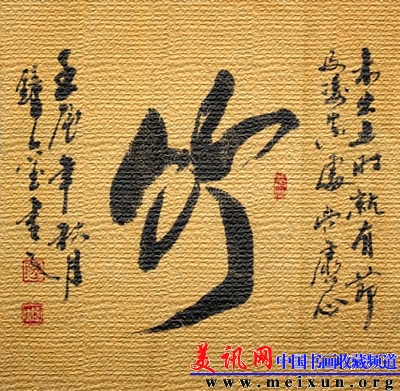 未出土时就有節
及凌云處尚虚心
竹
壬辰年秋月
美讯网 中国书画收藏频道
www.meixun.org